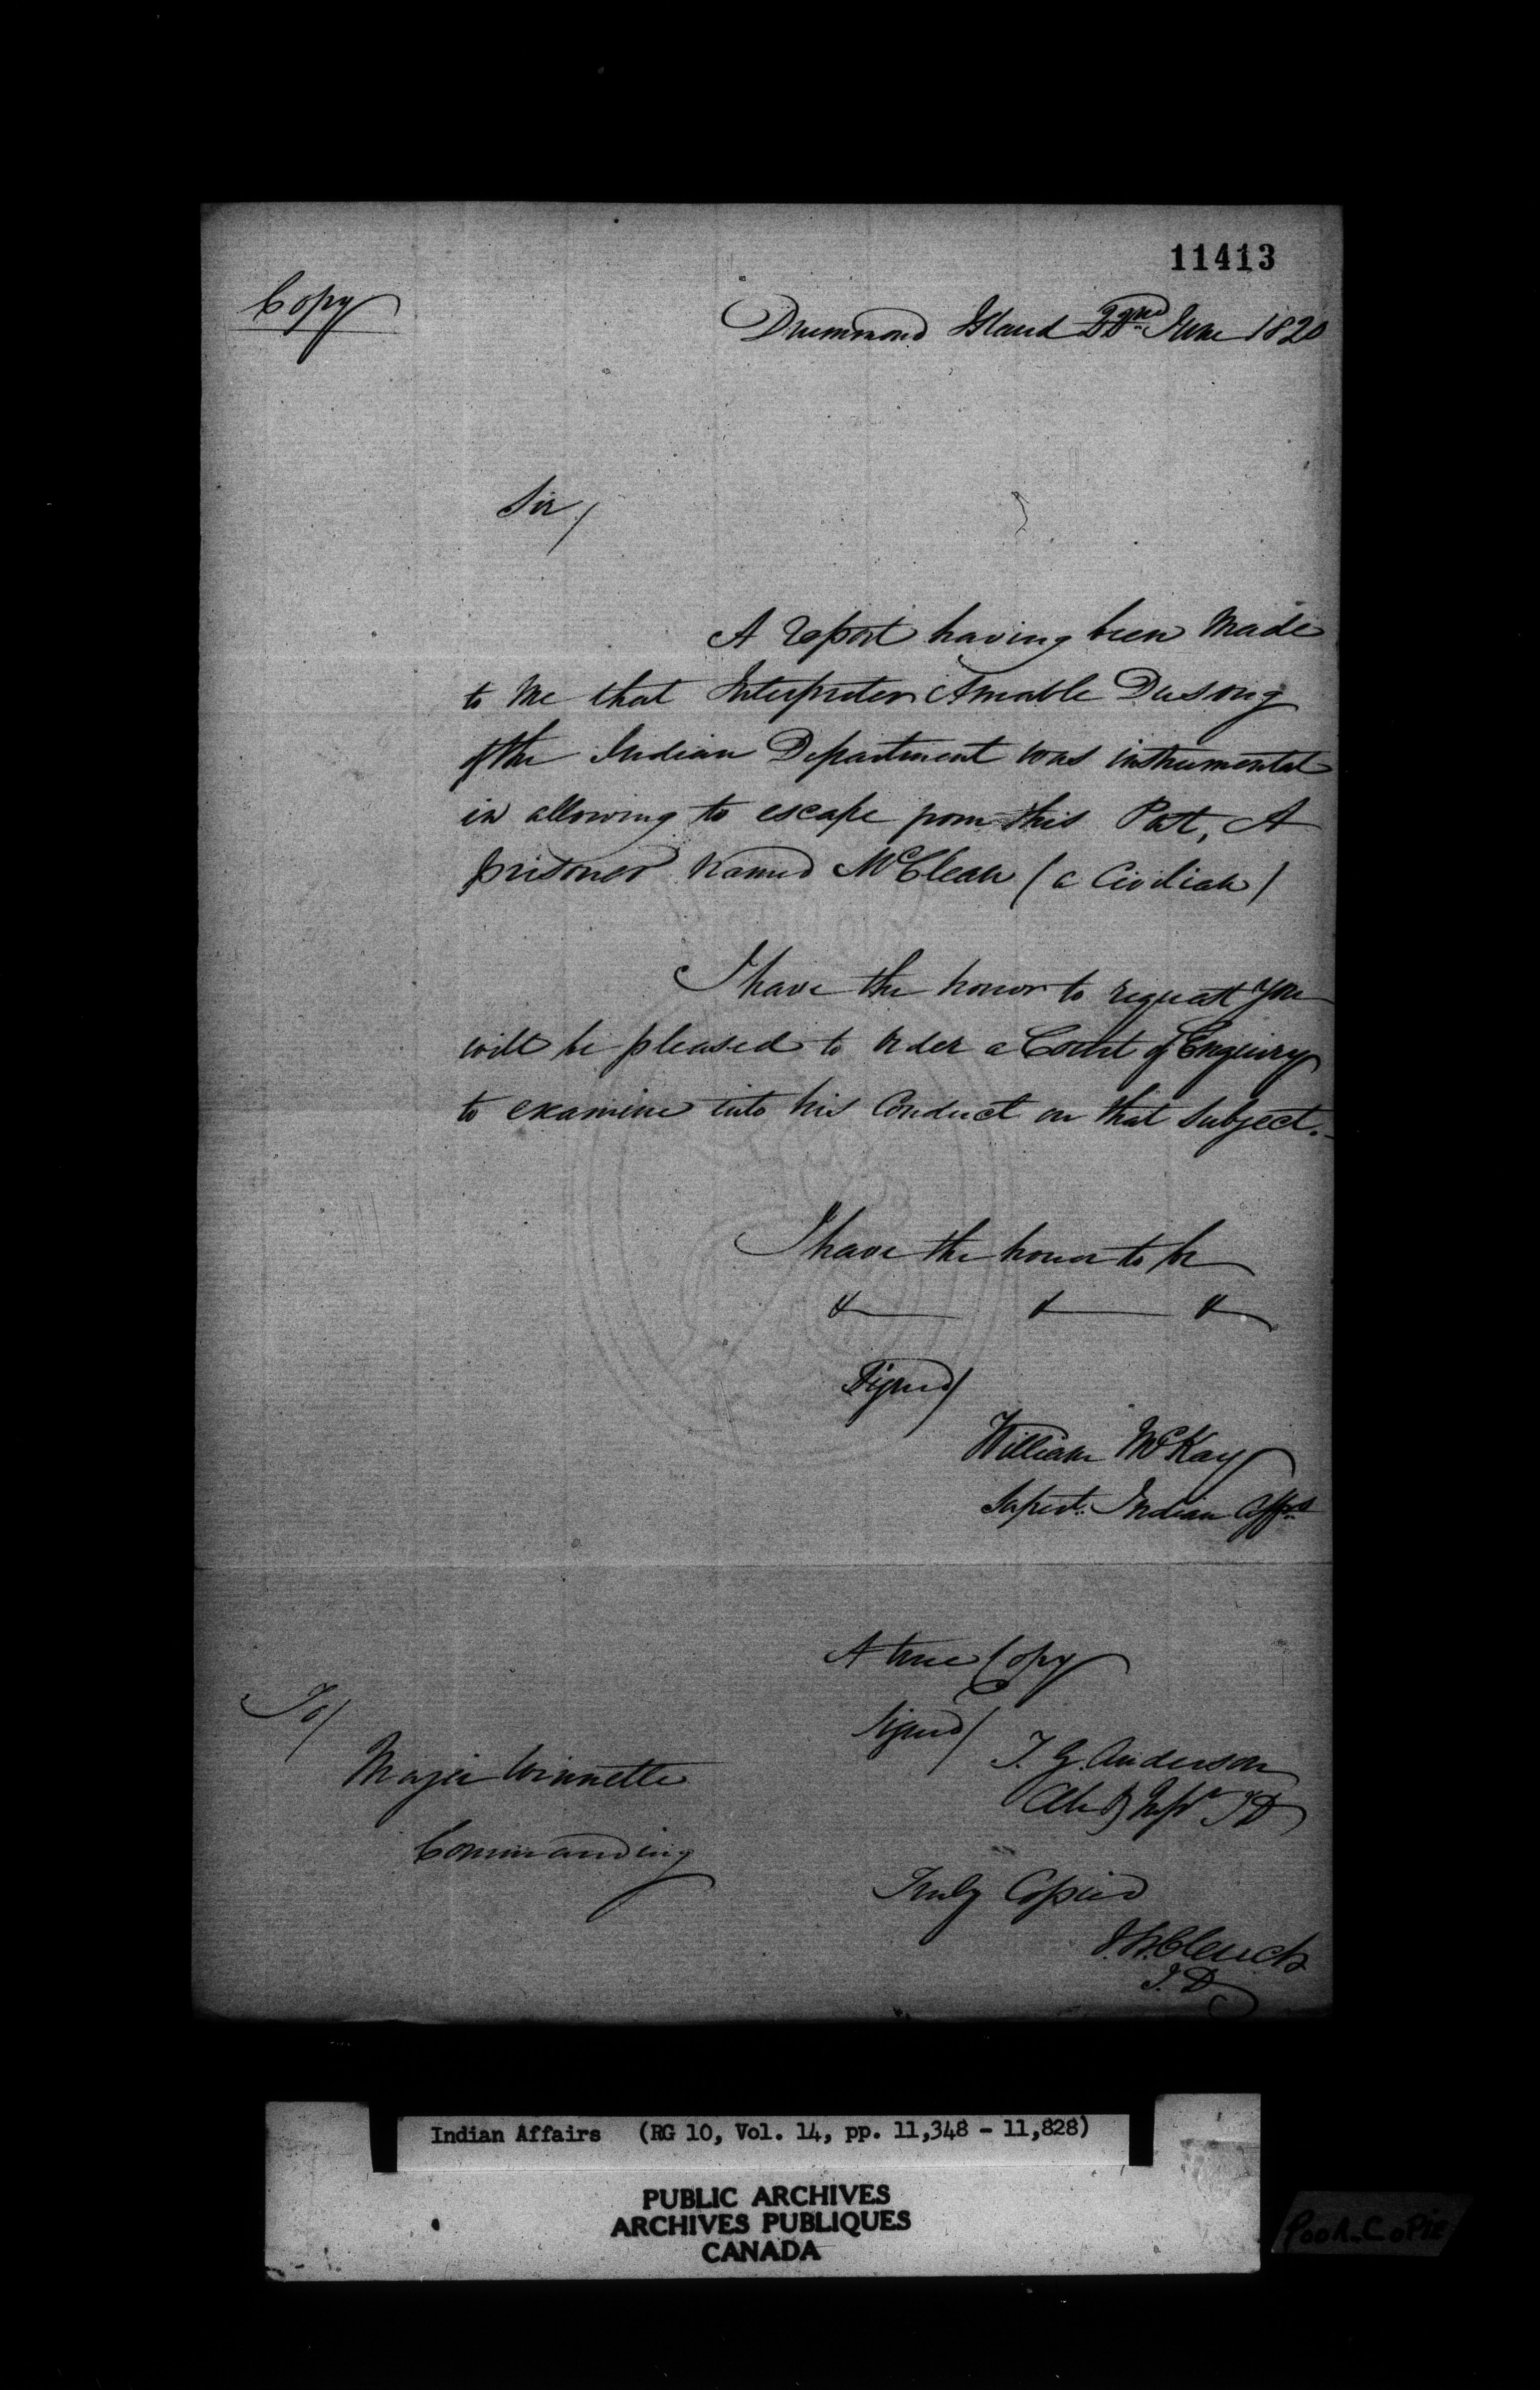 11413
Copy
Drummond Island 22nd June 1820
Sir/
A report having been Made
to Me that Interpreter Amable Dusong
of the Indian Department was instrumental
in allowing to escape from this Post, A
prisoner Named McClean (a Civilian)
I have the honor to request you
will be pleased to order a Court of Enquiry
to examine into his Conduct on that Subject.
I have the honor to be
& & &
Signed/
William McKay
Supert. Indian Affrs
A true Copy
Signed/
T. G. Anderson
To/
Major Winnette
Commanding
Truly Copied
J. W. Clench
I. D
Indian Affairs (RG 10, Vol. 14, pp. 11,348 - 11,828)
PUBLIC ARCHIVES
ARCHIVES PUBLIQUES
CANADA
Poor-Copie